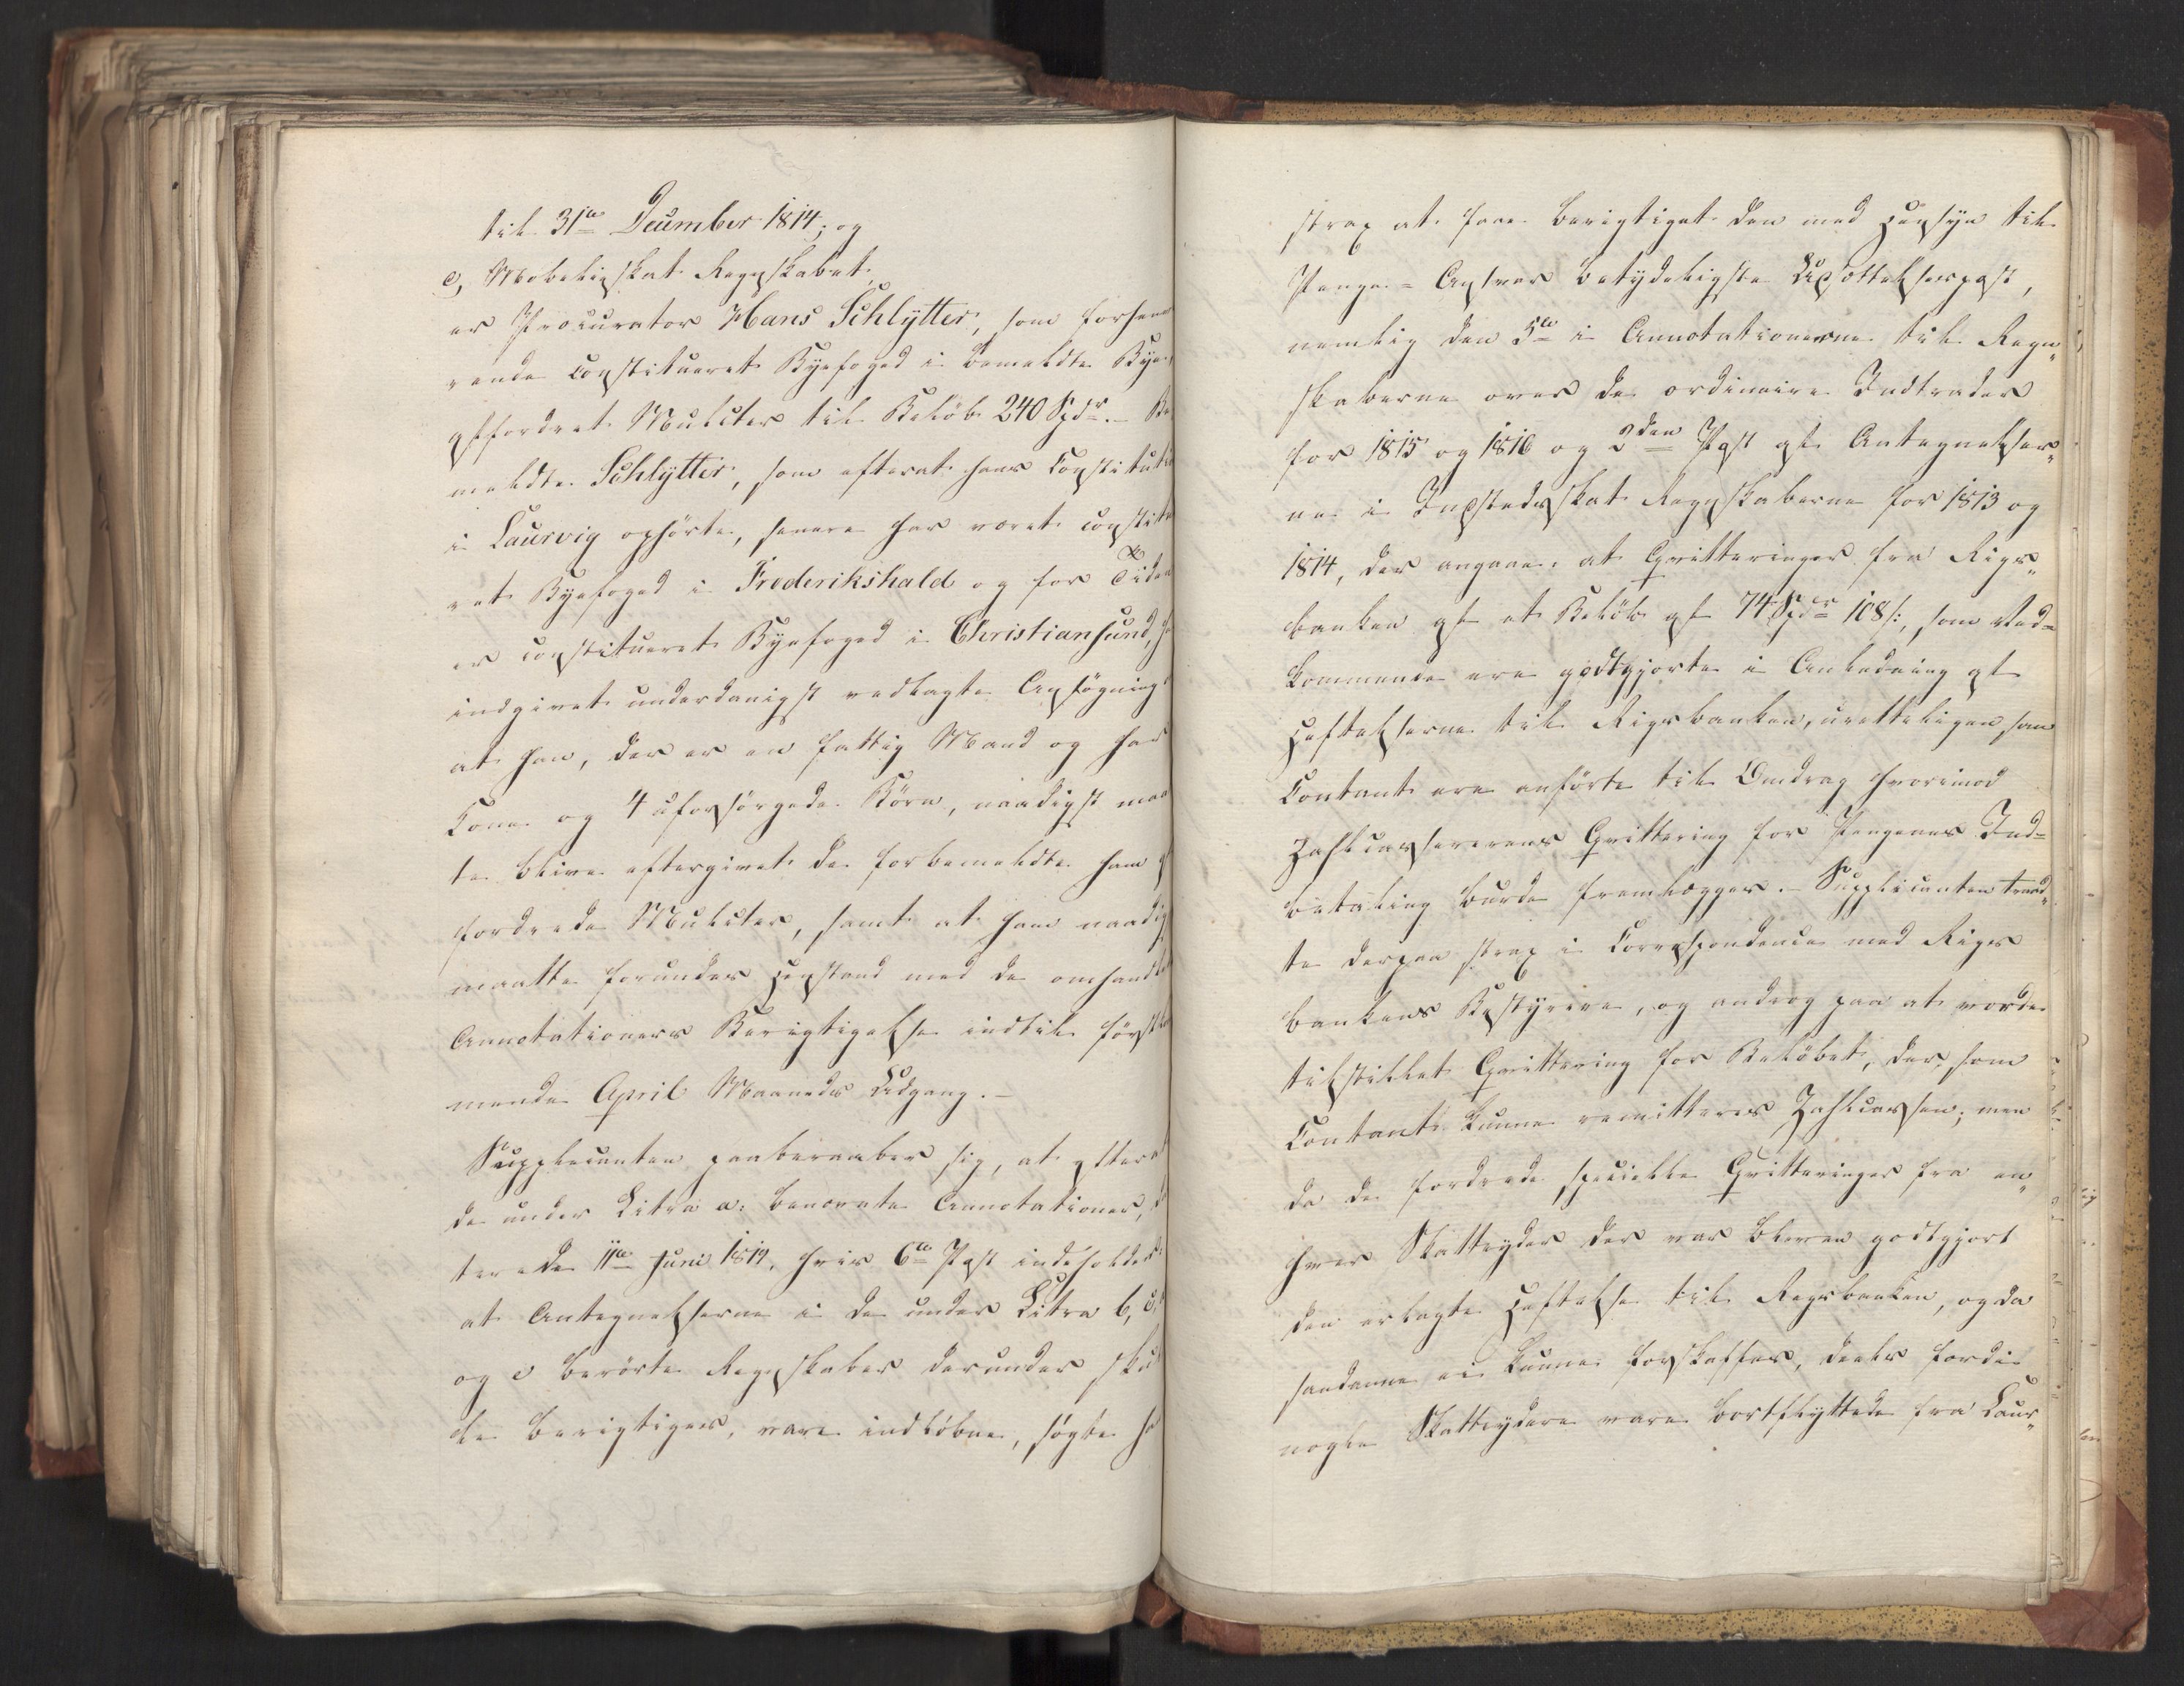 til 31te December 1814; og
e, Mobelieskat Regnskabet,
er Procurator Hans Schlytter, som forhen
rende constitueret Byefoged i bemeldte Bye,
affordret Mulcter til Beløb 240 Spdr. – Be
meldte Schlytter, som efterat hans Constitut
i Laurvig ophørte, senere har været constitu
ret Byefoged i Frederikshald og for Tiden
er constitueret Byefoged i Christiansund, h
indgivet underdanigst vedlagte Ansøgning
at han, der er en fattig Mand og har
Kone og 4 uforsørgede Børn, naadigst maa
te blive eftergivet de forbemeldte ham af
fordrede Mulcter, samt at ham naadig
maatte forundes Henstand med de omhandl
Annotationers Berigtigelse indtil førstk
mende April Maaneds Udgang. –
Supplicanten paaberaaber sig, at efterat
de under Litra a: benævnte Annotationer, d
terede 11te Juni 1819, hvis 6te Post indeholder
at Antegnelserne i de under Litra b, c,
og e berørte Regnskaber derunder skul
de berigtiges, vare indløbne, søgte ha
strax at faae berigtiget den med Hensyn til
Penge-Ansvar betydeligste Udsættelsespost,
nemlig den 5te i Annotationerne til Regn„
skaberne over de ordinaire Indtrader
for 1815 og 1816 og 2den Post af Antegnelser„
ne i Indstedsskat Regnskaberne for 1813 og
1814, der angaae, at Qvitteringer fra Rigs„
banken af et Beløb af 74 Spdr 108 s:, som Ved=
kommende ere godtgjorte i Anledning af
Heftelserne til Rigsbanken, uretteligen, som
Contant ere anførte til Omdrag hvorimod
Zahlcassererens Qvittering for Pengenes Ind=
betaling burde fremlægges. – Supplicanten traad„
te derpaa strax i Correspondence med Rigs
bankens Bestyrere, og androg paa at vorde
tilstillet Qvittering for Beløbet, der, som
Contant kunne remitteres Zahlcassen; men
da de fordrede specielle Qvitteringer fra en„
hver Skatteyder der var bleven godtgjort
den erlagte Heftelse til Rigsbanken, og da
saadanne ei kunne forskaffes, deels fordi
nogle Skatteydere vare bortflyttede fra Laur„